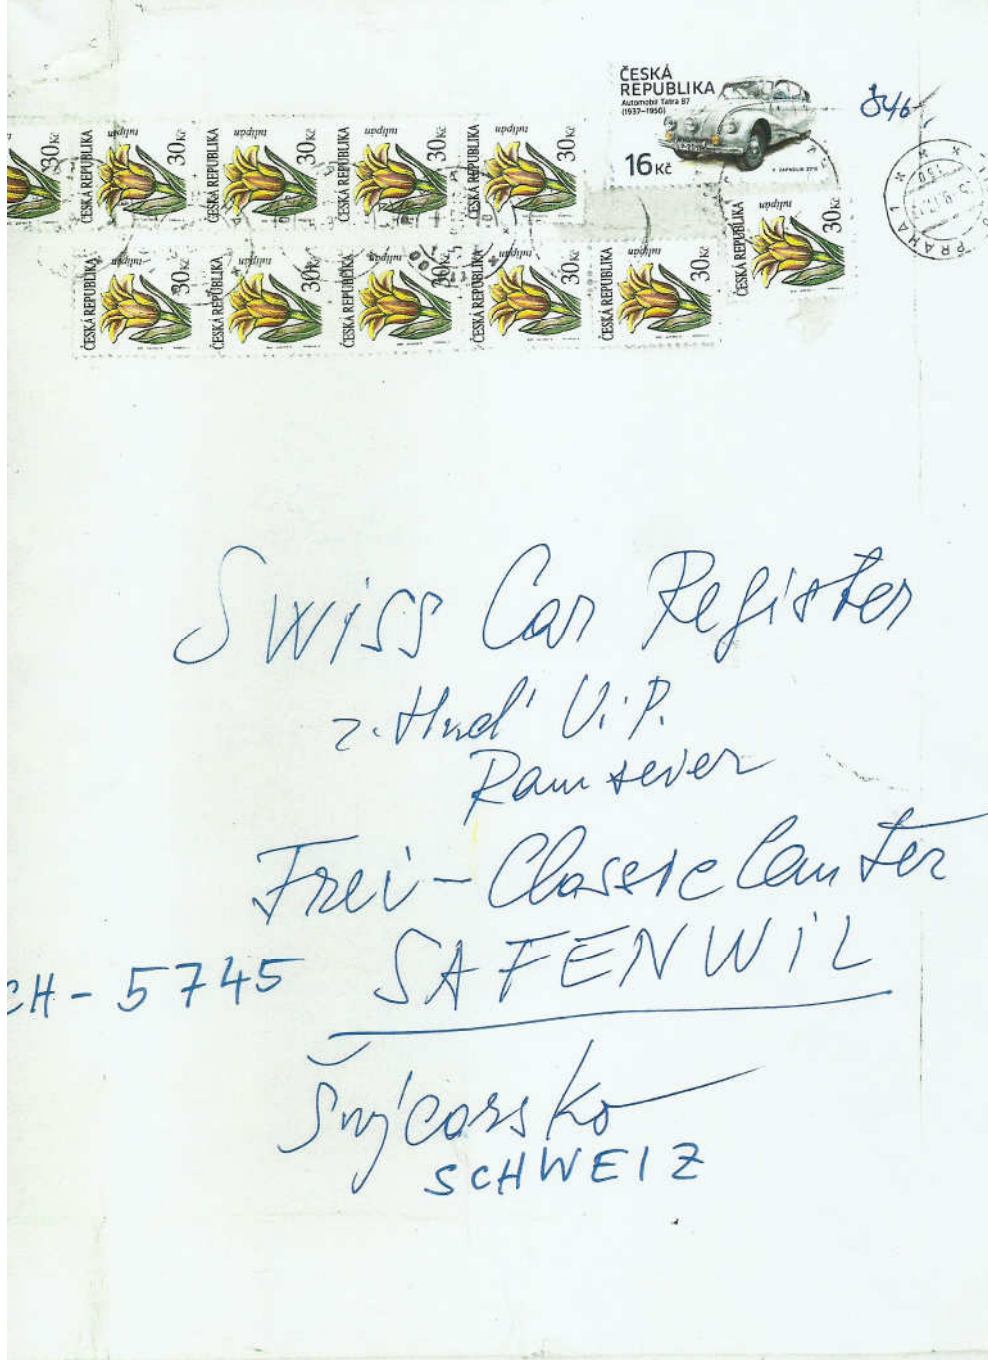 ČESKÁ
REPUBLIKA
Automobil Tatra 87
(1937–1950)
16 Kč
346
PRAHA 1
30 Kč
ČESKÁ REPUBLIKA tulipán 30 Kč
ČESKÁ REPUBLIKA tulipán 30 Kč
ČESKÁ REPUBLIKA tulipán 30 Kč
ČESKÁ REPUBLIKA tulipán 30 Kč
ČESKÁ REPUBLIKA tulipán 30 Kč
ČESKÁ REPUBLIKA tulipán 30 Kč
ČESKÁ REPUBLIKA tulipán 30 Kč
ČESKÁ REPUBLIKA tulipán 30 Kč
ČESKÁ REPUBLIKA tulipán 30 Kč
ČESKÁ REPUBLIKA tulipán 30 Kč
Swiss Car Register
z. Hnd' U. P.
Ramseier
Frei-Classic Center
CH-5745 SAFENWIL
Švýcarsko
SCHWEIZ